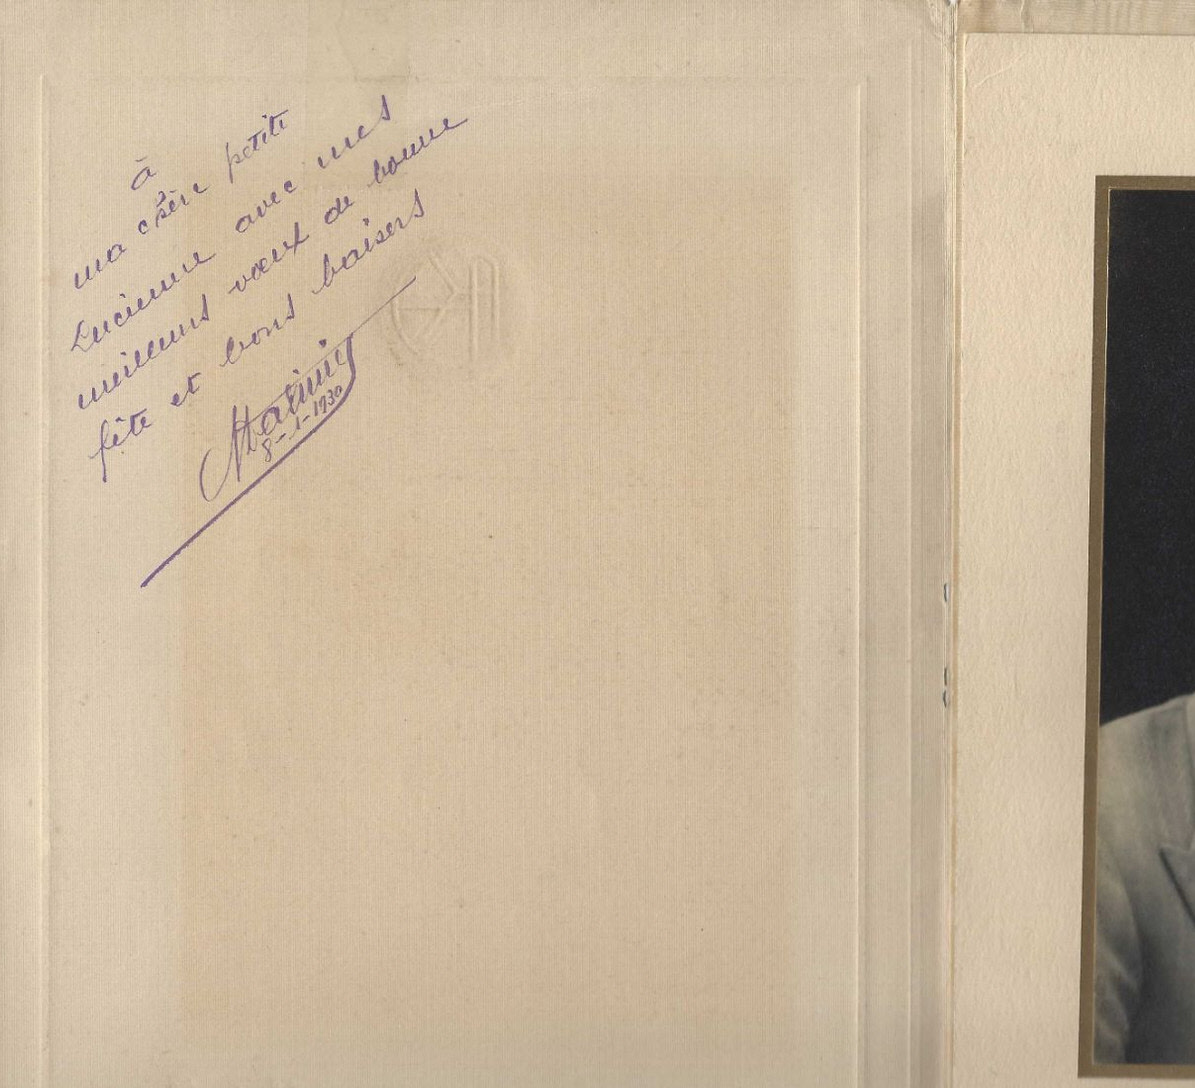 à
ma chère petite
Lucienne avec mes
meilleurs vœux de bonne
fête et bons baisers
8-1-1930